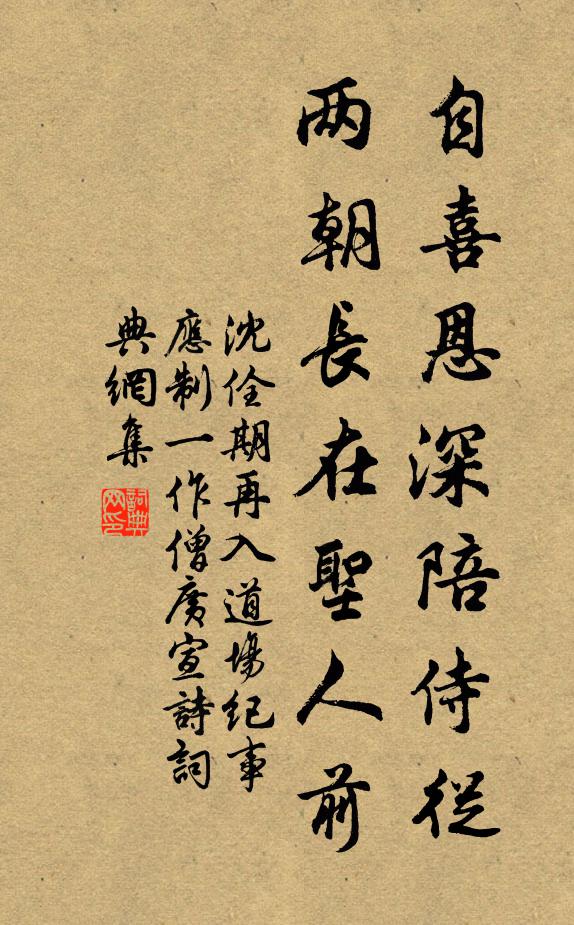 自喜恩深陪侍從
两朝長在聖人前
沈佺期再入道場紀事
應制一作僧廣宣詩詞
典網集
詞典
网印